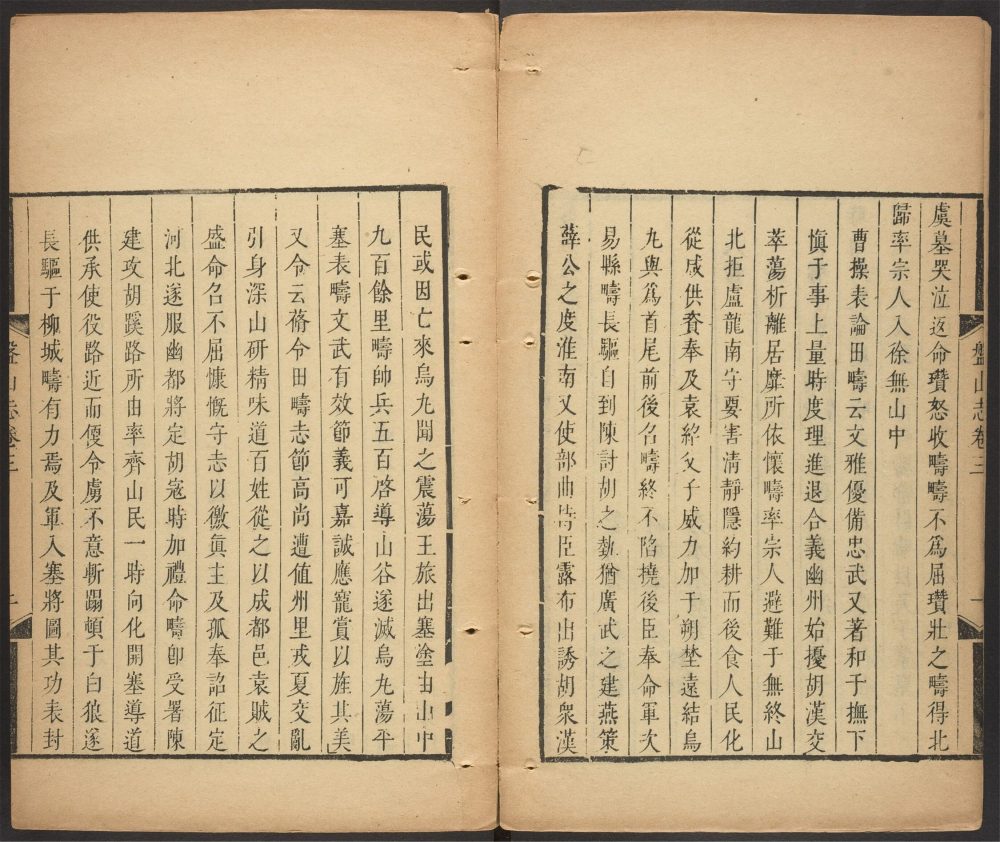 盤山志卷三
一
虞墓哭泣返命瓚怒收疇疇不爲屈瓚壯之疇得北
歸率宗人入徐無山中
曹操表論田疇云文雅優備忠武又著和于撫下
愼于事上量時度理進退合義幽州始擾胡漢交
萃蕩析離居靡所依懷疇率宗人避難于無終山
北拒盧龍南守要害清靜隱約耕而後食人民化
從咸供資奉及袁紹父子威力加于朔埜遠結烏
九與爲首尾前後名疇終不陷撓後臣奉命軍次
易縣疇長驅自到陳討胡之埶猶廣武之建燕策
薛公之度淮南又使部曲持臣露布出誘胡衆漢
民或因亡來烏九聞之震蕩王旅出塞塗由山中
九百餘里疇帥兵五百啓導山谷遂滅烏九蕩平
塞表疇文武有效節義可嘉誠應寵賞以旌其美
又令云蓨令田疇志節高尚遭値州里戎夏交亂
引身深山研精味道百姓從之以成都邑袁賊之
盛命名不屈慷慨守志以徼眞主及孤奉詔征定
河北遂服幽都將定胡寇時加禮命疇卽受署陳
建攻胡蹊路所由率齊山民一時向化開塞導道
供承使役路近而優令虜不意斬蹋頓于白狼遂
長驅于柳城疇有力焉及軍入塞將圖其功表封
盤山志卷三